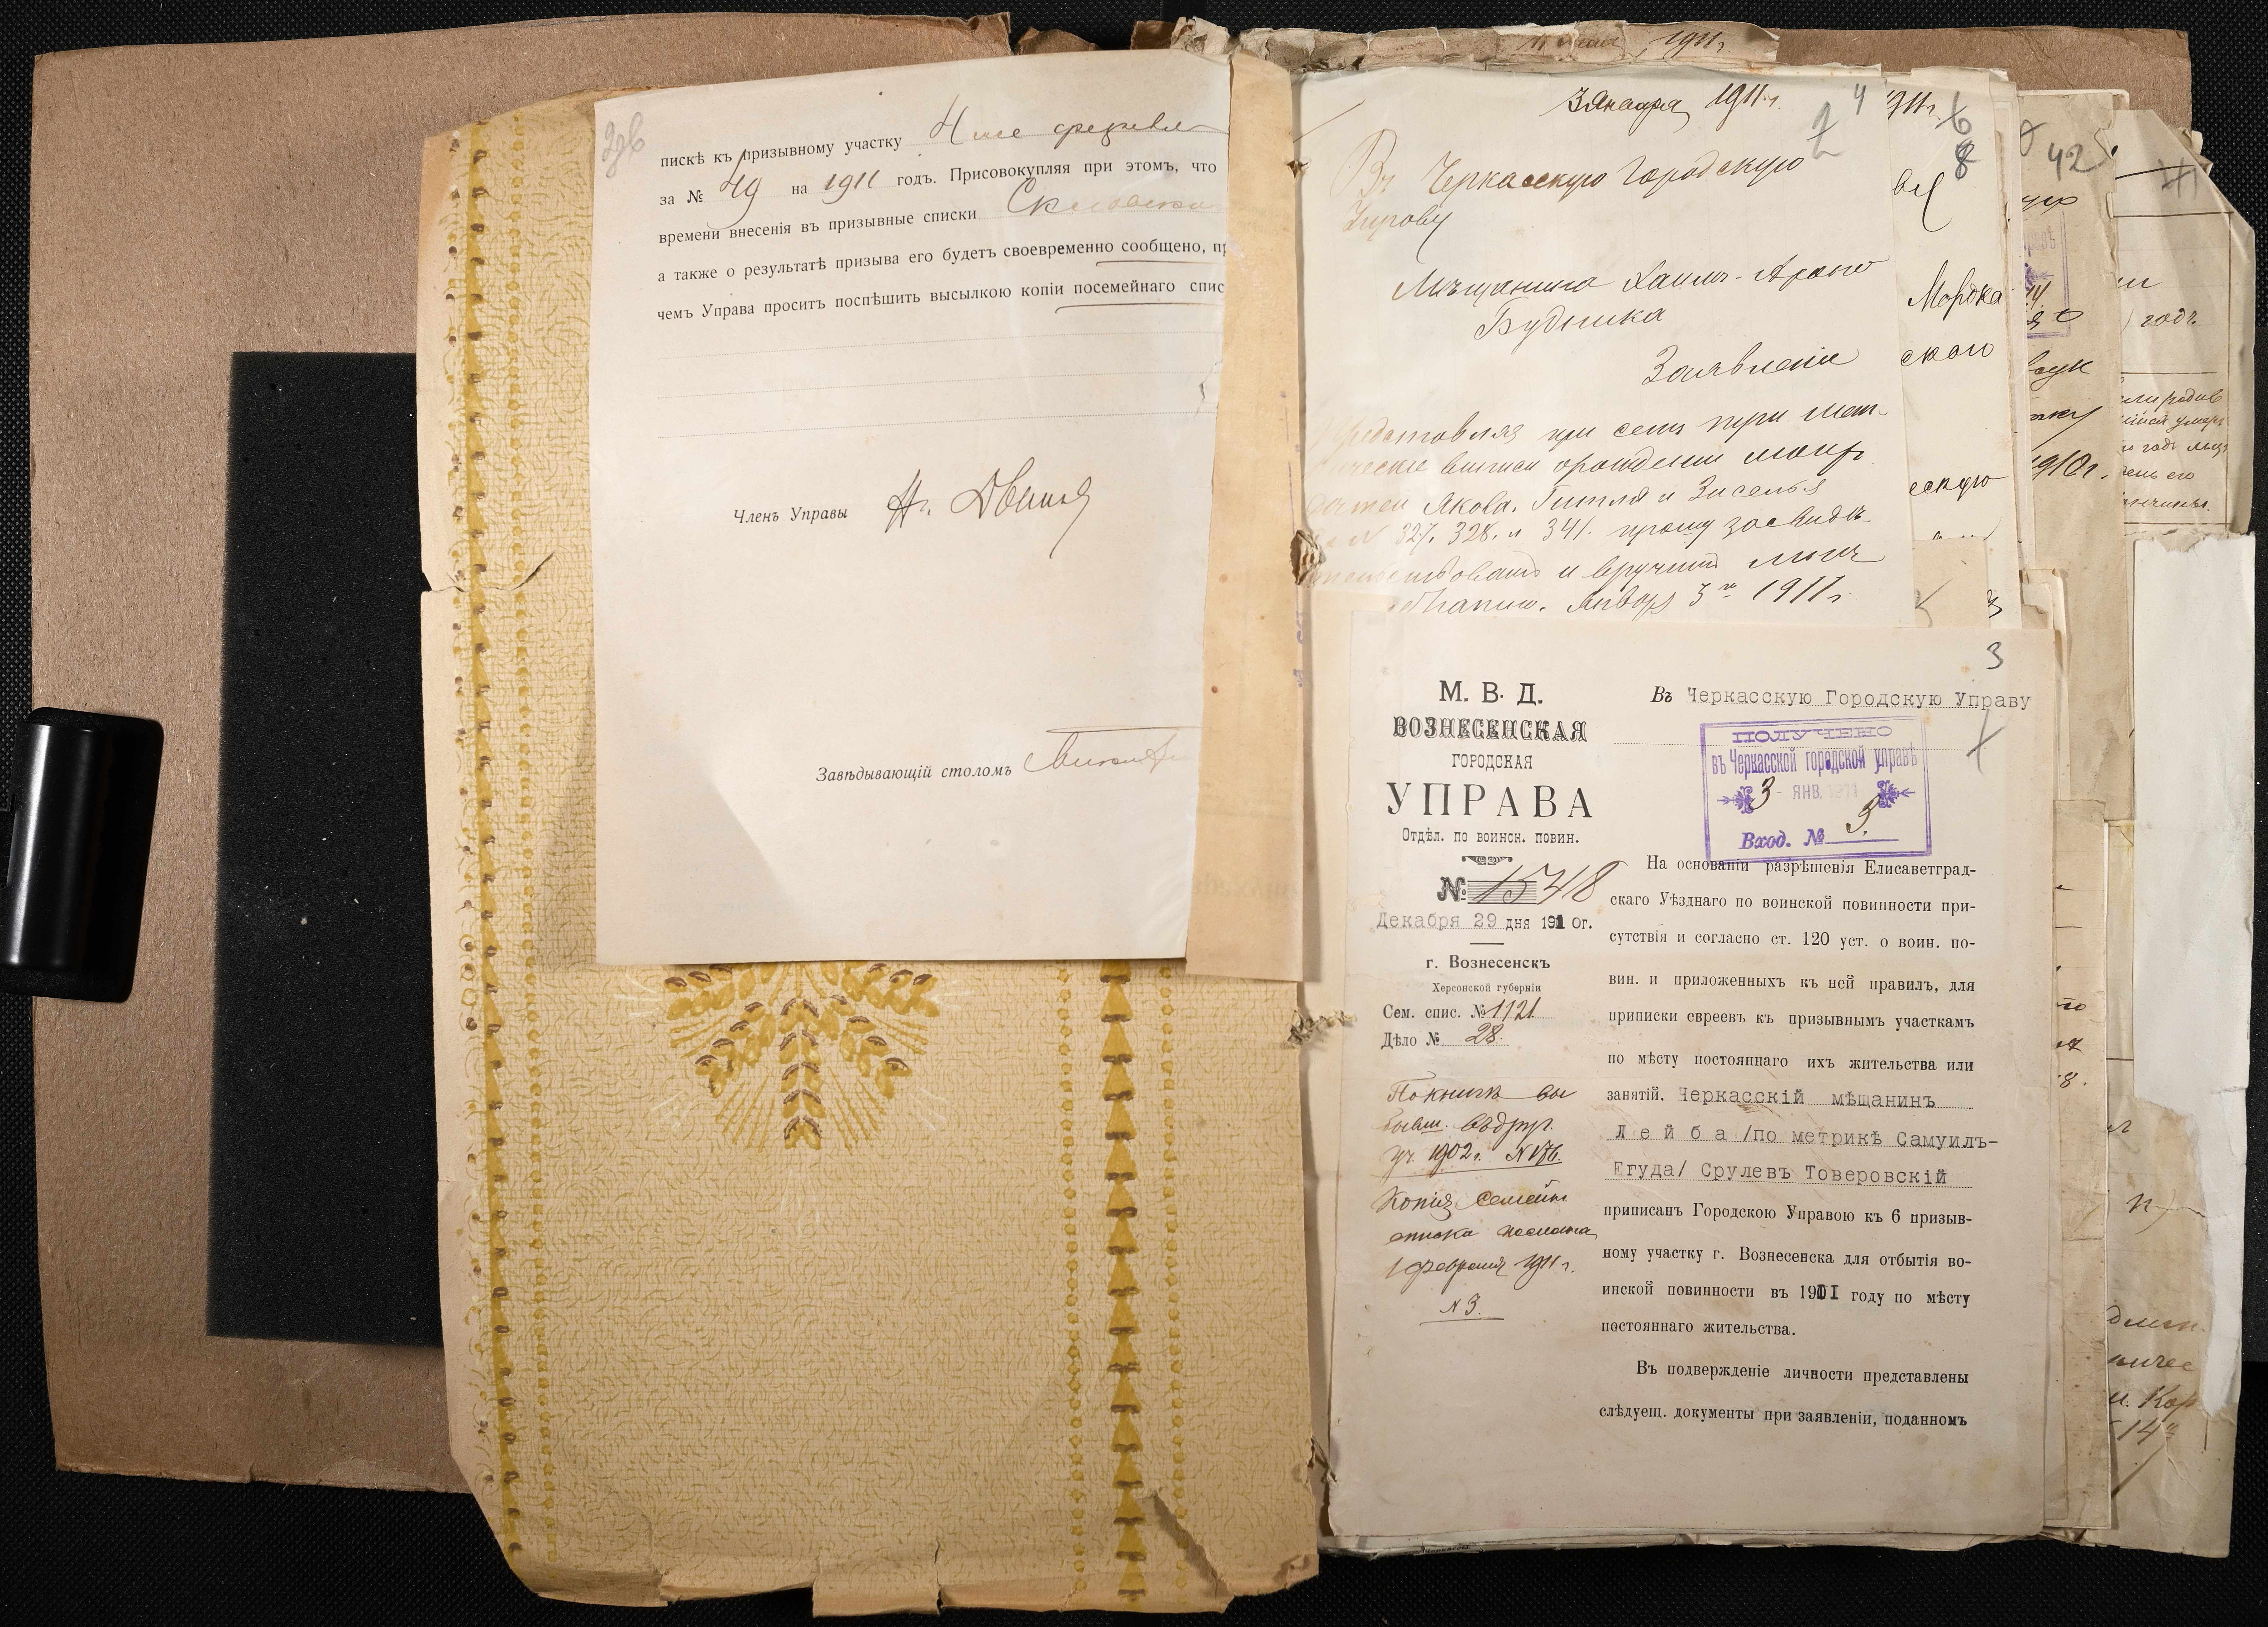 пискѣ къ призывному участку
за № 49 на 1911 годъ. Присовокупляя при этомъ, что
времени внесенія въ призывные списки
а также о результатѣ призыва его будетъ своевременно сообщено, пр
чемъ Управа проситъ поспѣшить высылкою копіи посемейнаго спис
Членъ Управы
Завѣдывающій столомъ
1911г.
3 Января 1911 г.
4
Въ Черкасскую Городскую
Управу
Мѣщанина Хаимъ-Арона
Будника
Заявленіе
Представляя при семъ три мет-
рическіе выписи о рожденіи моихъ
дѣтей Якова, Гитля и Зиселья
за № 327, 328 и 341. прошу засвидѣ-
тельствовать и вручить мнѣ
Января 3 1911 г
1911г.
6
8
Мордка
скаго
ескую
42
1910г.
годъ
3
М. В. Д.
ВОЗНЕСЕНСКАЯ
ГОРОДСКАЯ
УПРАВА
Отдѣл. по воинск. повин.
№ 1548
Декабря 29 дня 1910г.
г. Вознесенскъ
Херсонской губерніи
Сем. спис. № 1121
Дѣло № 28.
По книгѣ вы
бывш. въ друг.
уч. 1902 г. № 176.
Копія семейн.
списка послана
1 февраля 1911 г.
№ 3.
Въ Черкасскую Городскую Управу
ПОЛУЧЕНО
въ Черкасской городской управѣ
3 - ЯНВ. 1911
Вход. № 3.
На основаніи разрѣшенія Елисаветград-
скаго Уѣзднаго по воинской повинности при-
сутствія и согласно ст. 120 уст. о воин. по-
вин. и приложенныхъ къ ней правилъ, для
приписки евреевъ къ призывнымъ участкамъ
по мѣсту постояннаго ихъ жительства или
занятій, Черкасскій мѣщанинъ
Лейба /по метрикѣ Самуилъ-
Егуда/ Срулевъ Товеровскій
приписанъ Городскою Управою къ 6 призыв-
ному участку г. Вознесенска для отбытія во-
инской повинности въ 1911 году по мѣсту
постояннаго жительства.
Въ подвержденіе личности представлены
слѣдуещ. документы при заявленіи, поданномъ